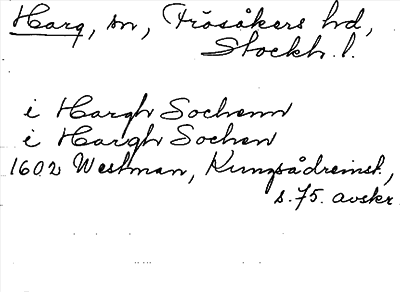 Harg, sn, Frösåkers hd,
Stockh. l.
i Hargh Sochenn
i Hargh Sochen
1602 Westman, Kungsådreinst.,
s. 75. avskr.